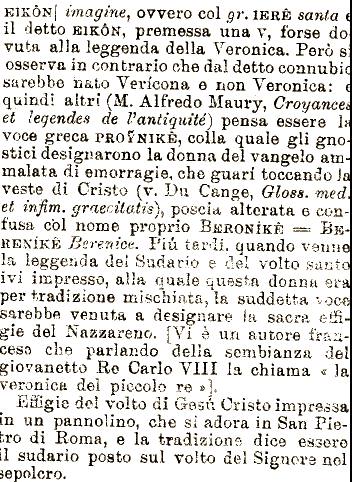 EIKÔN] imagine, ovvero col gr. IERÊ santa e
il detto EIKÔN, premessa una V, forse do-
vuta alla leggenda della Veronica. Però si
osserva in contrario che dal detto connubio
sarebbe nato Verícona e non Veronica: e
quindi altri (M. Alfredo Maury, Croyances
et legendes de l'antiquité) pensa essere la
voce greca PROŸNIKÊ, colla quale gli gno-
stici designarono la donna del vangelo am-
malata di emorragie, che guarì toccando la
veste di Cristo (v. Du Cange, Gloss. med.
et infim. graecitatis), poscia alterata e con-
fusa col nome proprio BERONÍKÊ = BE-
RENÍKÊ Berenice. Più tardi, quando venne
la leggenda del Sudario e del volto santo
ivi impresso, alla quale questa donna era
per tradizione mischiata, la suddetta voce
sarebbe venuta a designare la sacra effi-
gie del Nazzareno. [Vi è un autore fran-
cese che parlando della sembianza del
giovanetto Re Carlo VIII la chiama « la
veronica del piccolo re »].
Effigie del volto di Gesù Cristo impressa
in un pannolino, che si adora in San Pie-
tro di Roma, e la tradizione dice essere
il sudario posto sul volto del Signore nel
sepolcro.